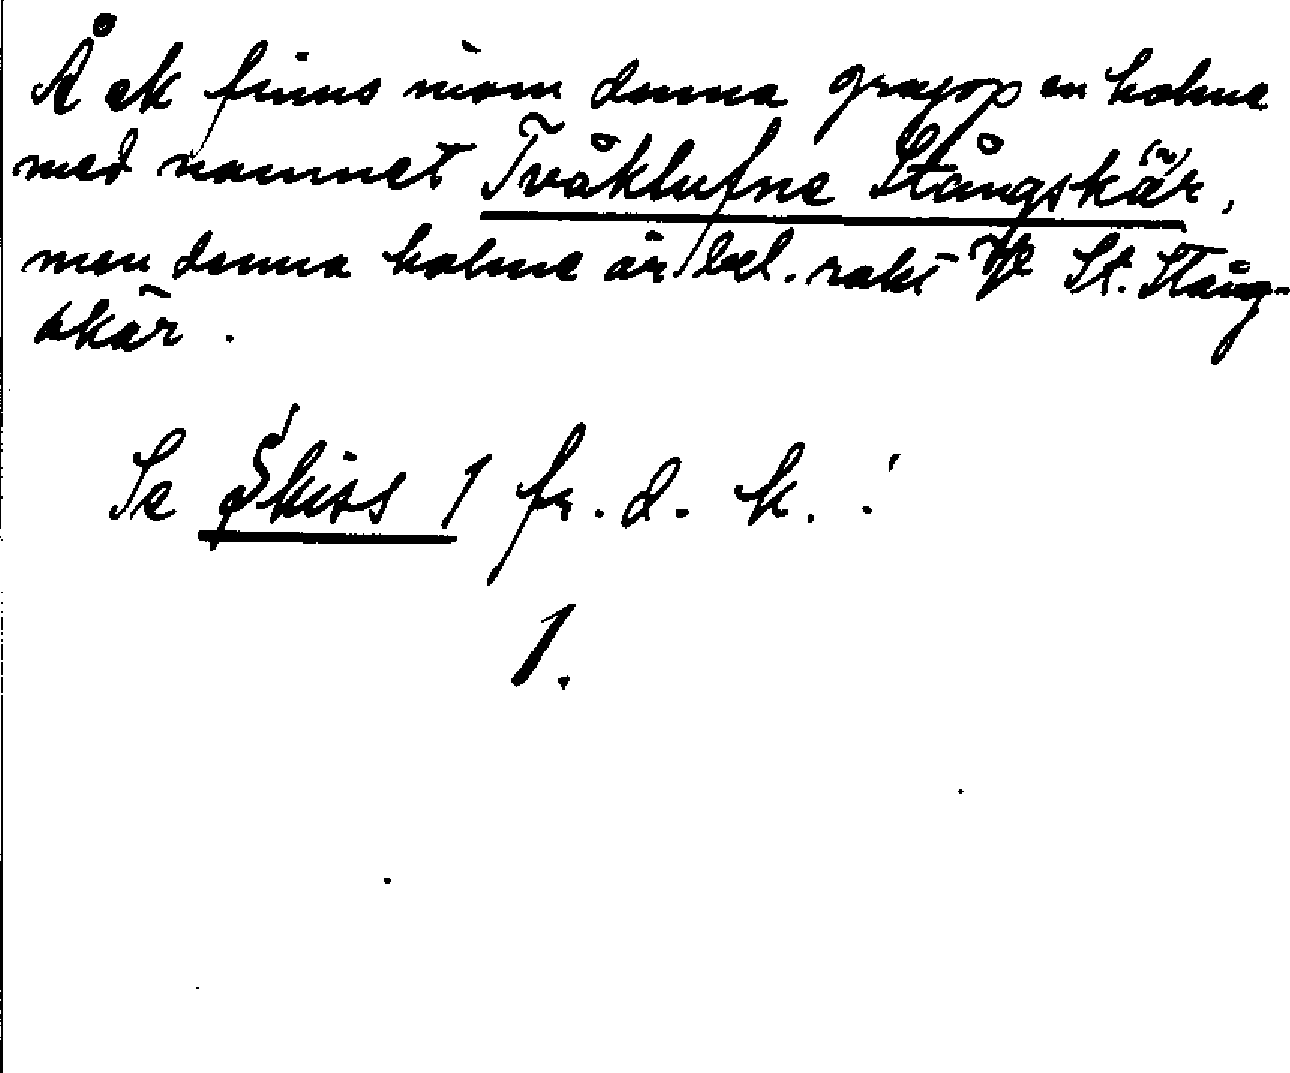 Å ek finns inom denna grupp en holme
med namnet Tvåklufne Stångskär,
men denna holme är bel. rakt St. Stång-
skär.
Se Skiss 1 fr. d. k.!
1.